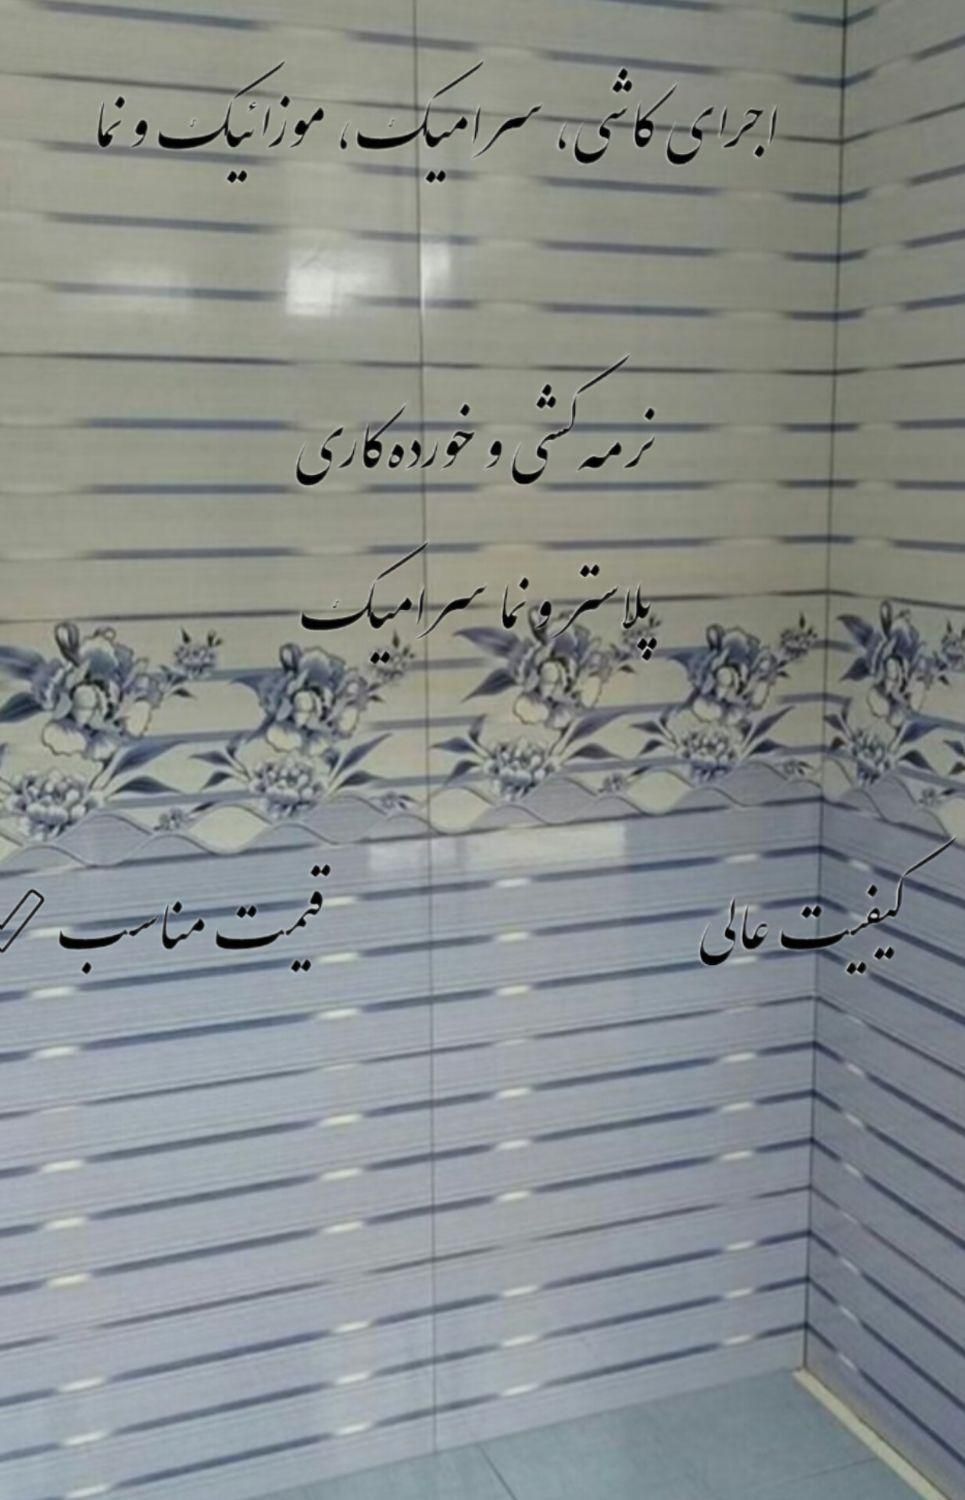 اجرای کاشی، سرامیک، موزائیک و نما
نرمه کشی و خورده کاری
پلاستر و نما سرامیک
کیفیت عالی
قیمت مناسب